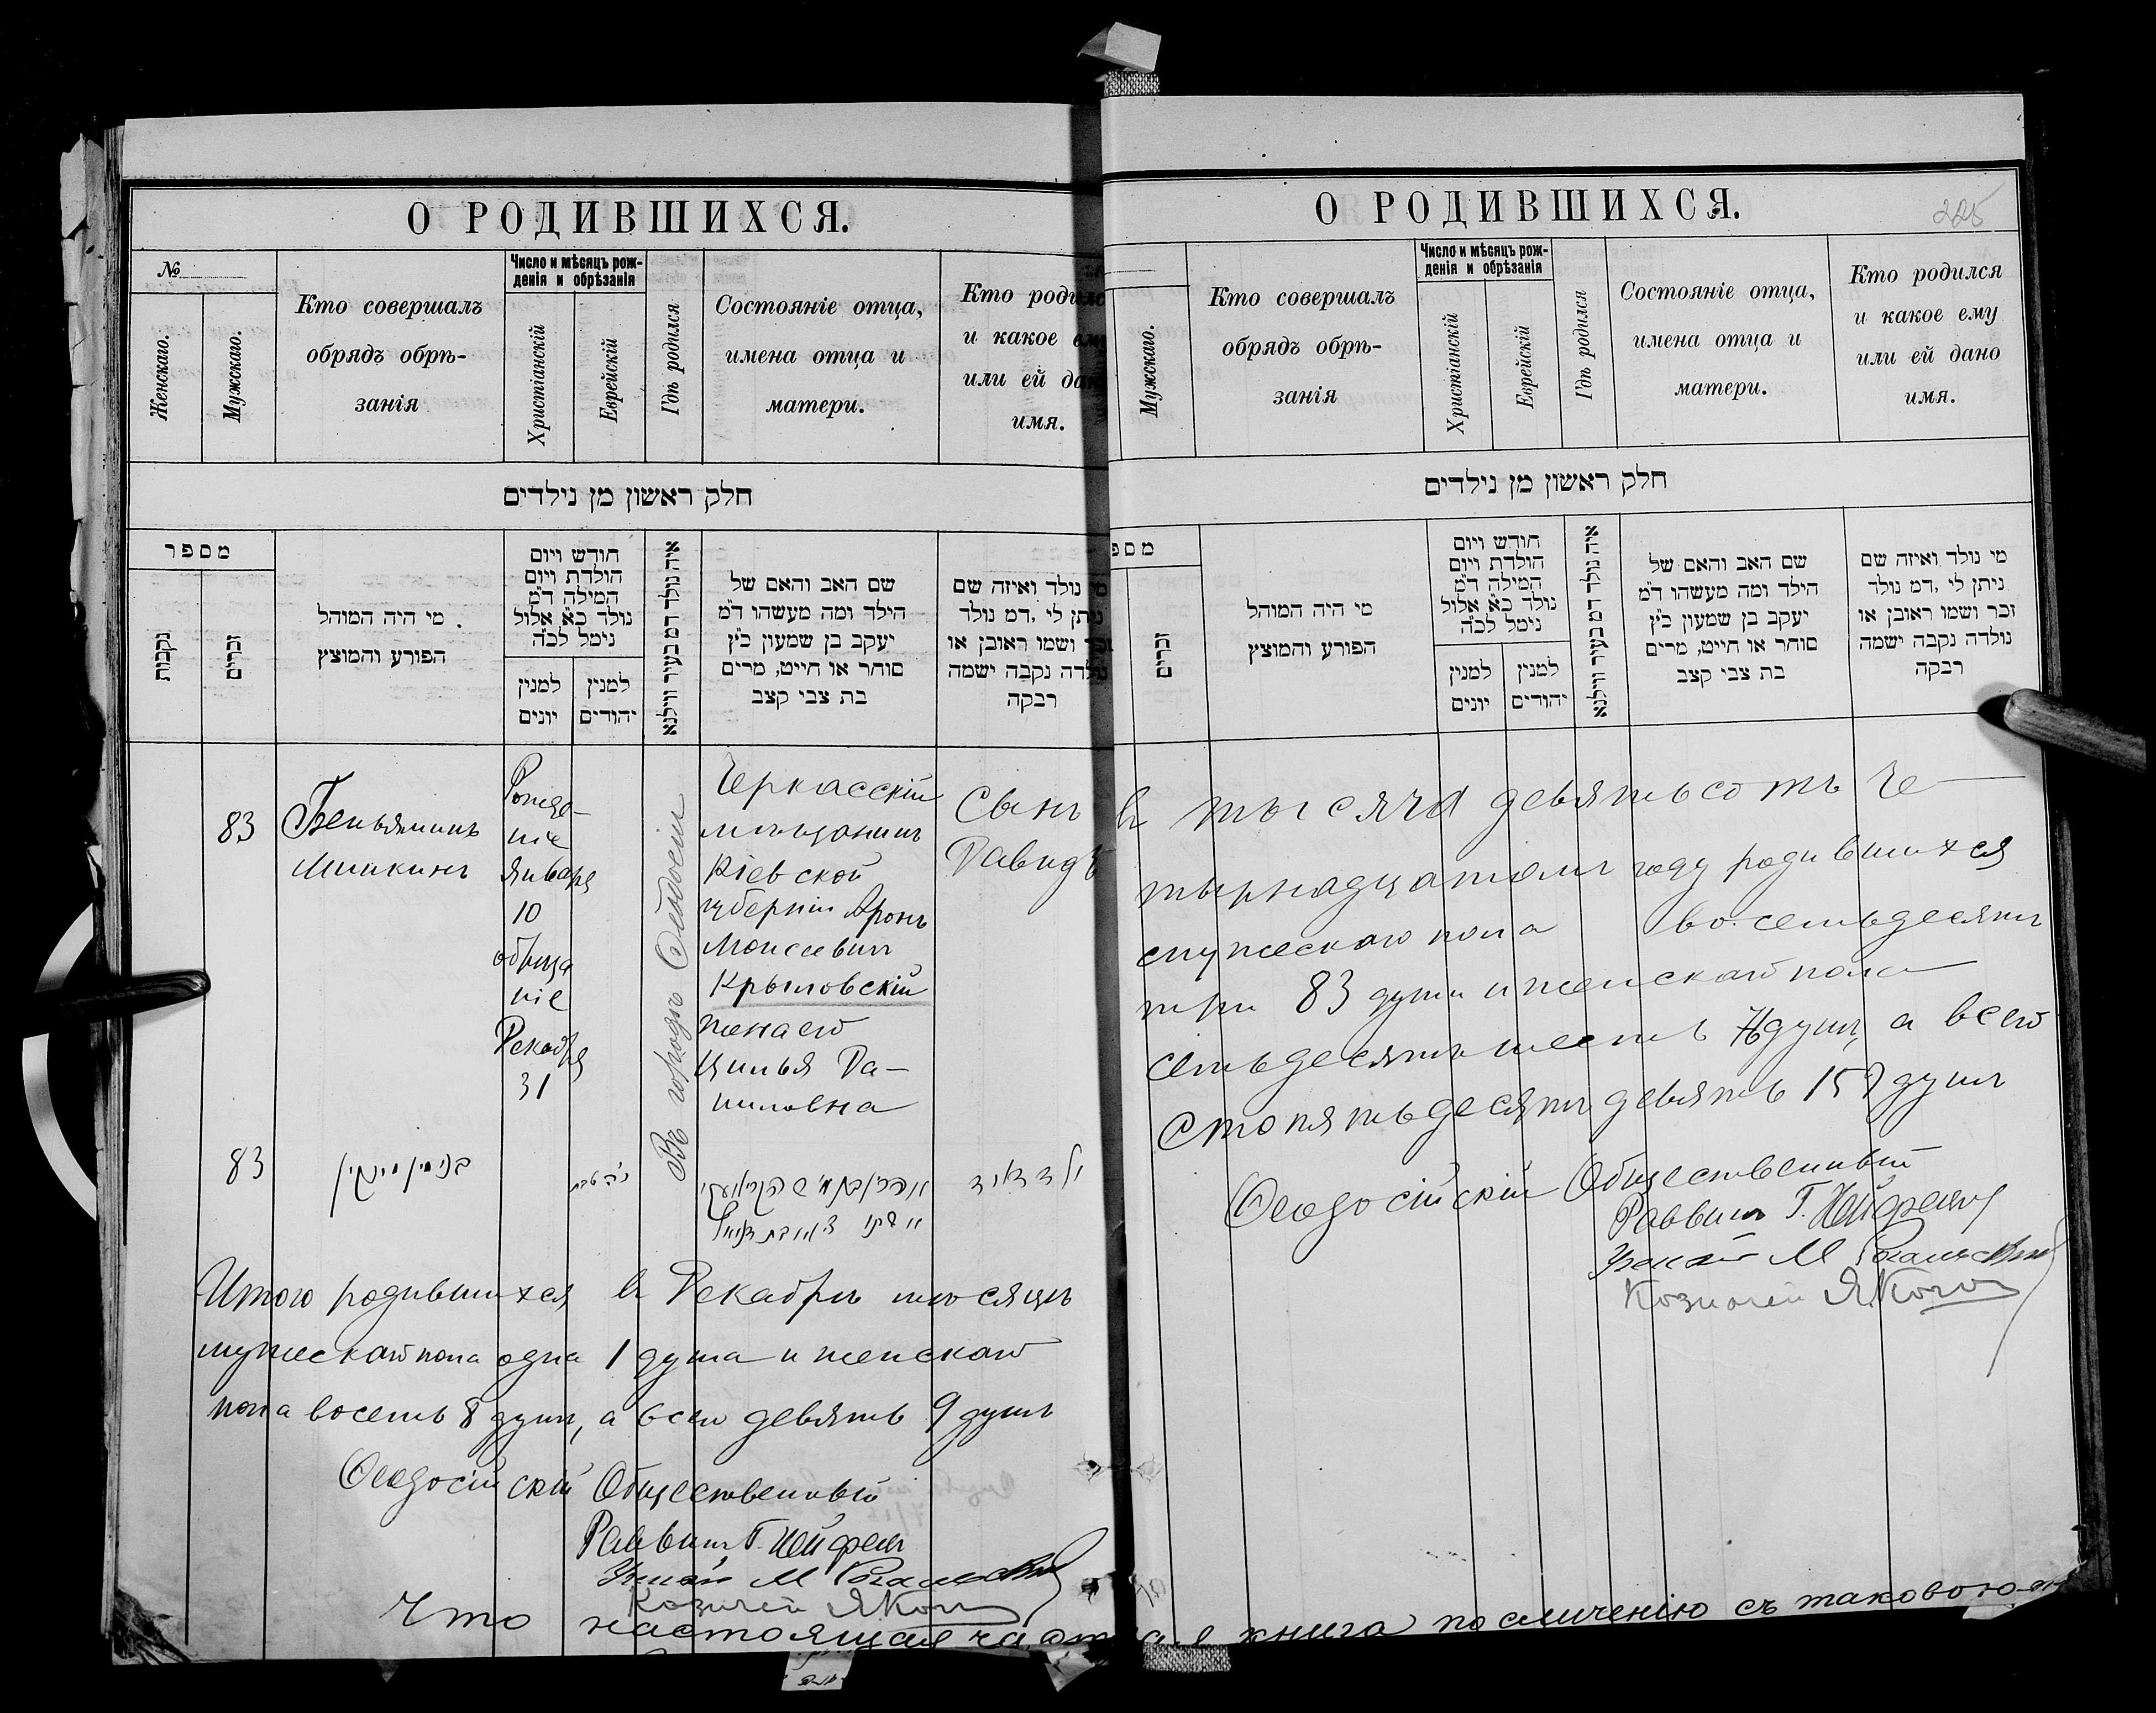 О РОДИВШИХСЯ.
№
Женскаго.
Мужскаго.
Кто совершалъ
обрядъ обрѣ-
занія
Число и мѣсяцъ рож-
денія и обрѣзанія
Христіанскій
Еврейскій
Гдѣ родился
Состояніе отца,
имена отца и
матери.
Кто родился
и какое ему
или ей дано
имя.
חלק ראשון מן נילדים
מספר
נקבות
זכרים
מי היה המוהל
הפורע והמוצץ
חודש ויום
הולדת ויום
המילה ד״מ
נולד כ״א אלול
נימל לכ״ה
למנין
יונים
למנין
יהודים
איה נולד דמ בעיר ווילנא
שם האב והאם של
הילד ומה מעשהו ד״מ
יעקב בן שמעון כ״ץ
סוחר או חייט, מרים
בת צבי קצב
מי נולד ואיזה שם
ניתן לי ,דמ נולד
זכר ושמו ראובן או
נולדה נקבה ישמה
רבקה
83
Беньяминъ
Минкинъ
Рожде-
ніе
Января
10
обрѣза
ніе
Декабря
31
Въ городѣ Ѳеодосіи
Черкасскій
мѣщанинъ
Кіевской
губерніи Аронъ
Моисеевичъ
Крыловскій
жена его
Цилья Да-
ниловна
Сынъ
Давидъ
83
בנימין מינקין
ילד דוד
Итого родившихся въ Декабрѣ мѣсяцѣ
мужескаго пола одна 1 душа и женскаго
пола восемь 8 душъ, а всего девять 9 душъ
Ѳеодосійскій Общественный
Раввинъ Г. Нейфельд
Казначей Я Коген
Что настоящая
О РОДИВШИХСЯ.
225
Мужскаго.
Кто совершалъ
обрядъ обрѣ-
занія
Число и мѣсяцъ рож-
денія и обрѣзанія
Христіанскій
Еврейскій
Гдѣ родился
Состояніе отца,
имена отца и
матери.
Кто родился
и какое ему
или ей дано
имя.
חלק ראשון מן נילדים
מספ
זכרים
מי היה המוהל
הפורע והמוצץ
חודש ויום
הולדת ויום
המילה ד״מ
נולד כ״א אלול
נימל לכ״ה
למנין
יונים
למנין
יהודים
איה נולד דמ בעיר ווילנא
שם האב והאם של
הילד ומה מעשהו ד״מ
יעקב בן שמעון כ״ץ
סוחר או חייט, מרים
בת צבי קצב
מי נולד ואיזה שם
ניתן לי ,דמ נולד
זכר ושמו ראובן או
נולדה נקבה ישמה
רבקה
въ тысяча девятьсотъ че-
тырнадцатомъ году родившихся
мужескаго пола восемьдесятъ
три 83 души и женскаго пола
семьдесятъ шесть 76 душъ, а всего
сто пятьдесятъ девять 159 душъ
Ѳеодосійскій Общественный
Раввинъ Г. Нейфельд
Казначей Я. Коген
книга по сличенію съ таковою